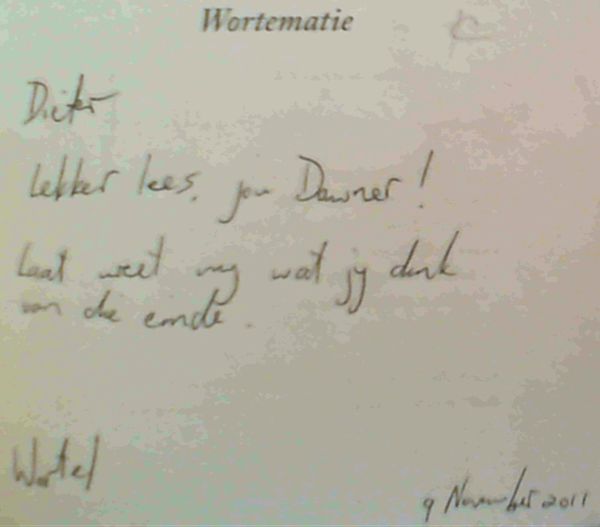 Wortematie
Dieter
Lekker lees, jou Downer!
Laat weet my wat jy dink
van die einde.
Wortel
9 November 2011